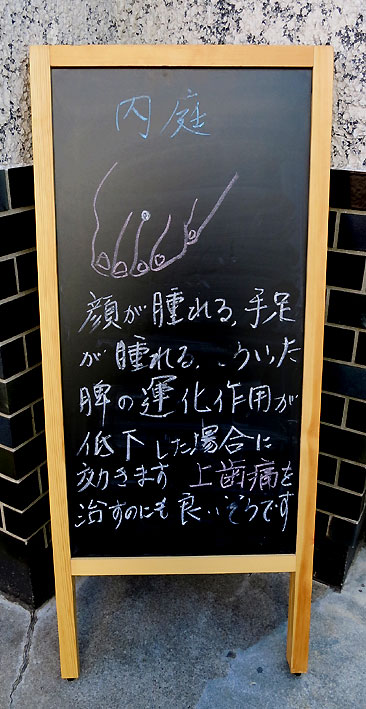 内庭
顔が腫れる,手足
が腫れる,こういった
脾の運化作用が
低下した場合に
効きます 上歯痛を
治すのにも良いそうです